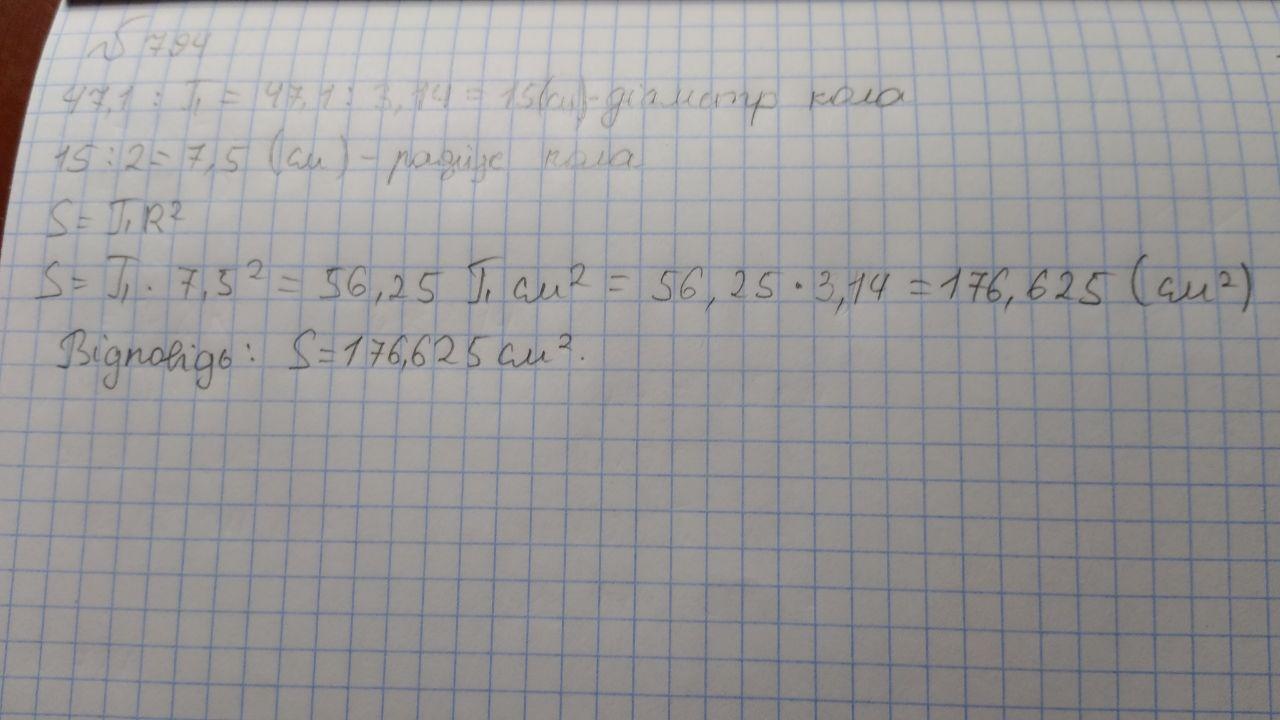 № 794
47,1 : π = 47,1 : 3,14 = 15(см)-діаметр кола
15 : 2 = 7,5 (см) - радіус кола
S = πR²
S = π · 7,5² = 56,25 π см² = 56,25 · 3,14 = 176,625 (см²)
Відповідь: S = 176,625 см².